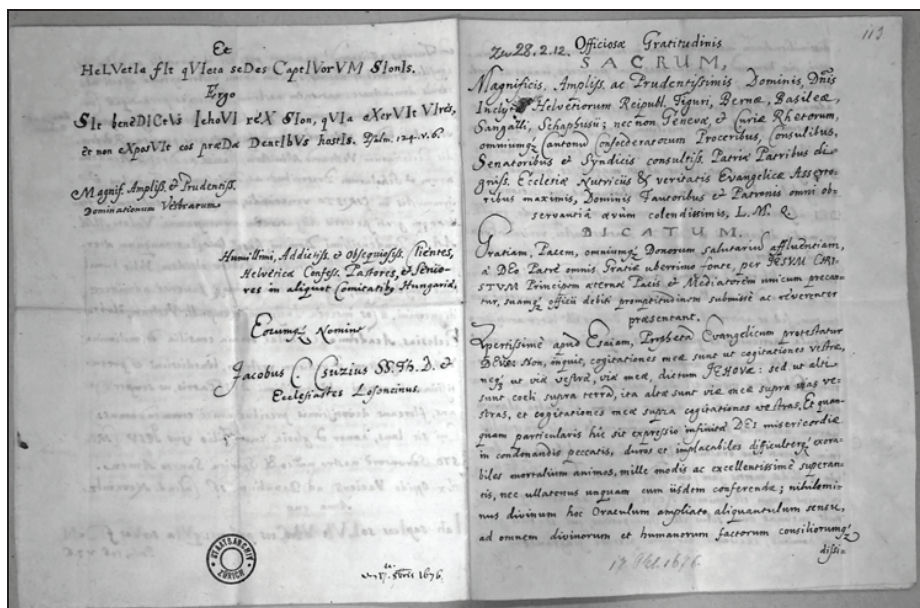 Et
HeLVetIa fIt qVIeta seDes CaptIVorVM SIonIs.
Ergo
SIt beneDICtVs IehoVI reX SIon, qVIa eXerVIt VIres,
et non eXposVIt eos præDæ DentIbVs hostIs. Psalm. 124. v. 6.
Magnif. Ampliss. et Prudentiss.
Dominationum Vestrarum
Humillimi, Addictiss. et Obsequiosiss. Clientes,
Helveticæ Confess. Pastores, et Senio-
res in aliquot Comitatib9 Hungariæ,
Eorumq3 Nomine
Jacobus C. Csuzius SS. Th. D. et
Ecclesiastes Losoncinus.
STAATSARCHIV ZÜRICH
17. 1676.
113
28.2.12. Officiosæ Gratitudinis
SACRUM,
Magnificis, Ampliss. ac Prudentissimis Dominis, Dnis
Inclytæ Helvetiorum Reipubl. Tiguri, Bernæ, Basileæ,
Sangalli, Schaphusii; nec non Genevæ, et Curiæ Rhetorum,
omniumq3 Cantonū Confœderatorum Proceribus, Consulibus,
Senatoribus et Syndicis consultiss. Patriæ Patribus di-
gniss. Ecclesiæ Nutriciis & veritatis Evangelicæ Asserto-
ribus maximis, Dominis Fautoribus et Patronis omni ob-
servantiâ ævum colendissimis, L. M. Q.
DICATUM,
Gratiam, Pacem, omniumq3 Donorum salutariū affluentiam,
à DEO Patre omnis Gratiæ uberrimo fonte, per JESUM CHRI-
STUM Principem æternæ Pacis et Mediatorem unicum precan-
tur, suamq3 officii debiti promptitudinem submisse ac reverenter
præsentant.
Apertissimè apud Esaiam, Prophetā Evangelicum protestatur
DEUS: Non, inquit, cogitationes meæ sunt ut cogitationes vestræ,
neq3 ut viæ vestræ, viæ meæ, dictum JEHOVÆ: sed ut alti
sunt cœli supra terrā, ita altæ sunt viæ meæ supra vias ve-
stras, et cogitationes meæ supra cogitationes vestras. Et quan-
quam particularis hic sit expressio infinitæ DEI misericordiæ
in condonandis peccatis, duros et implacabiles difficulterq3 exora-
biles mortalium animos, mille modis ac excellentissimè superan-
tis, nec ullatenus unquam cum iisdem conferendæ; nihilomi-
nus divinum hoc Oraculum ampliato aliquantulum sensu,
ad omnem divinorum et humanorum factorum consiliorumq3
dissi-
17 Okt. 1676.